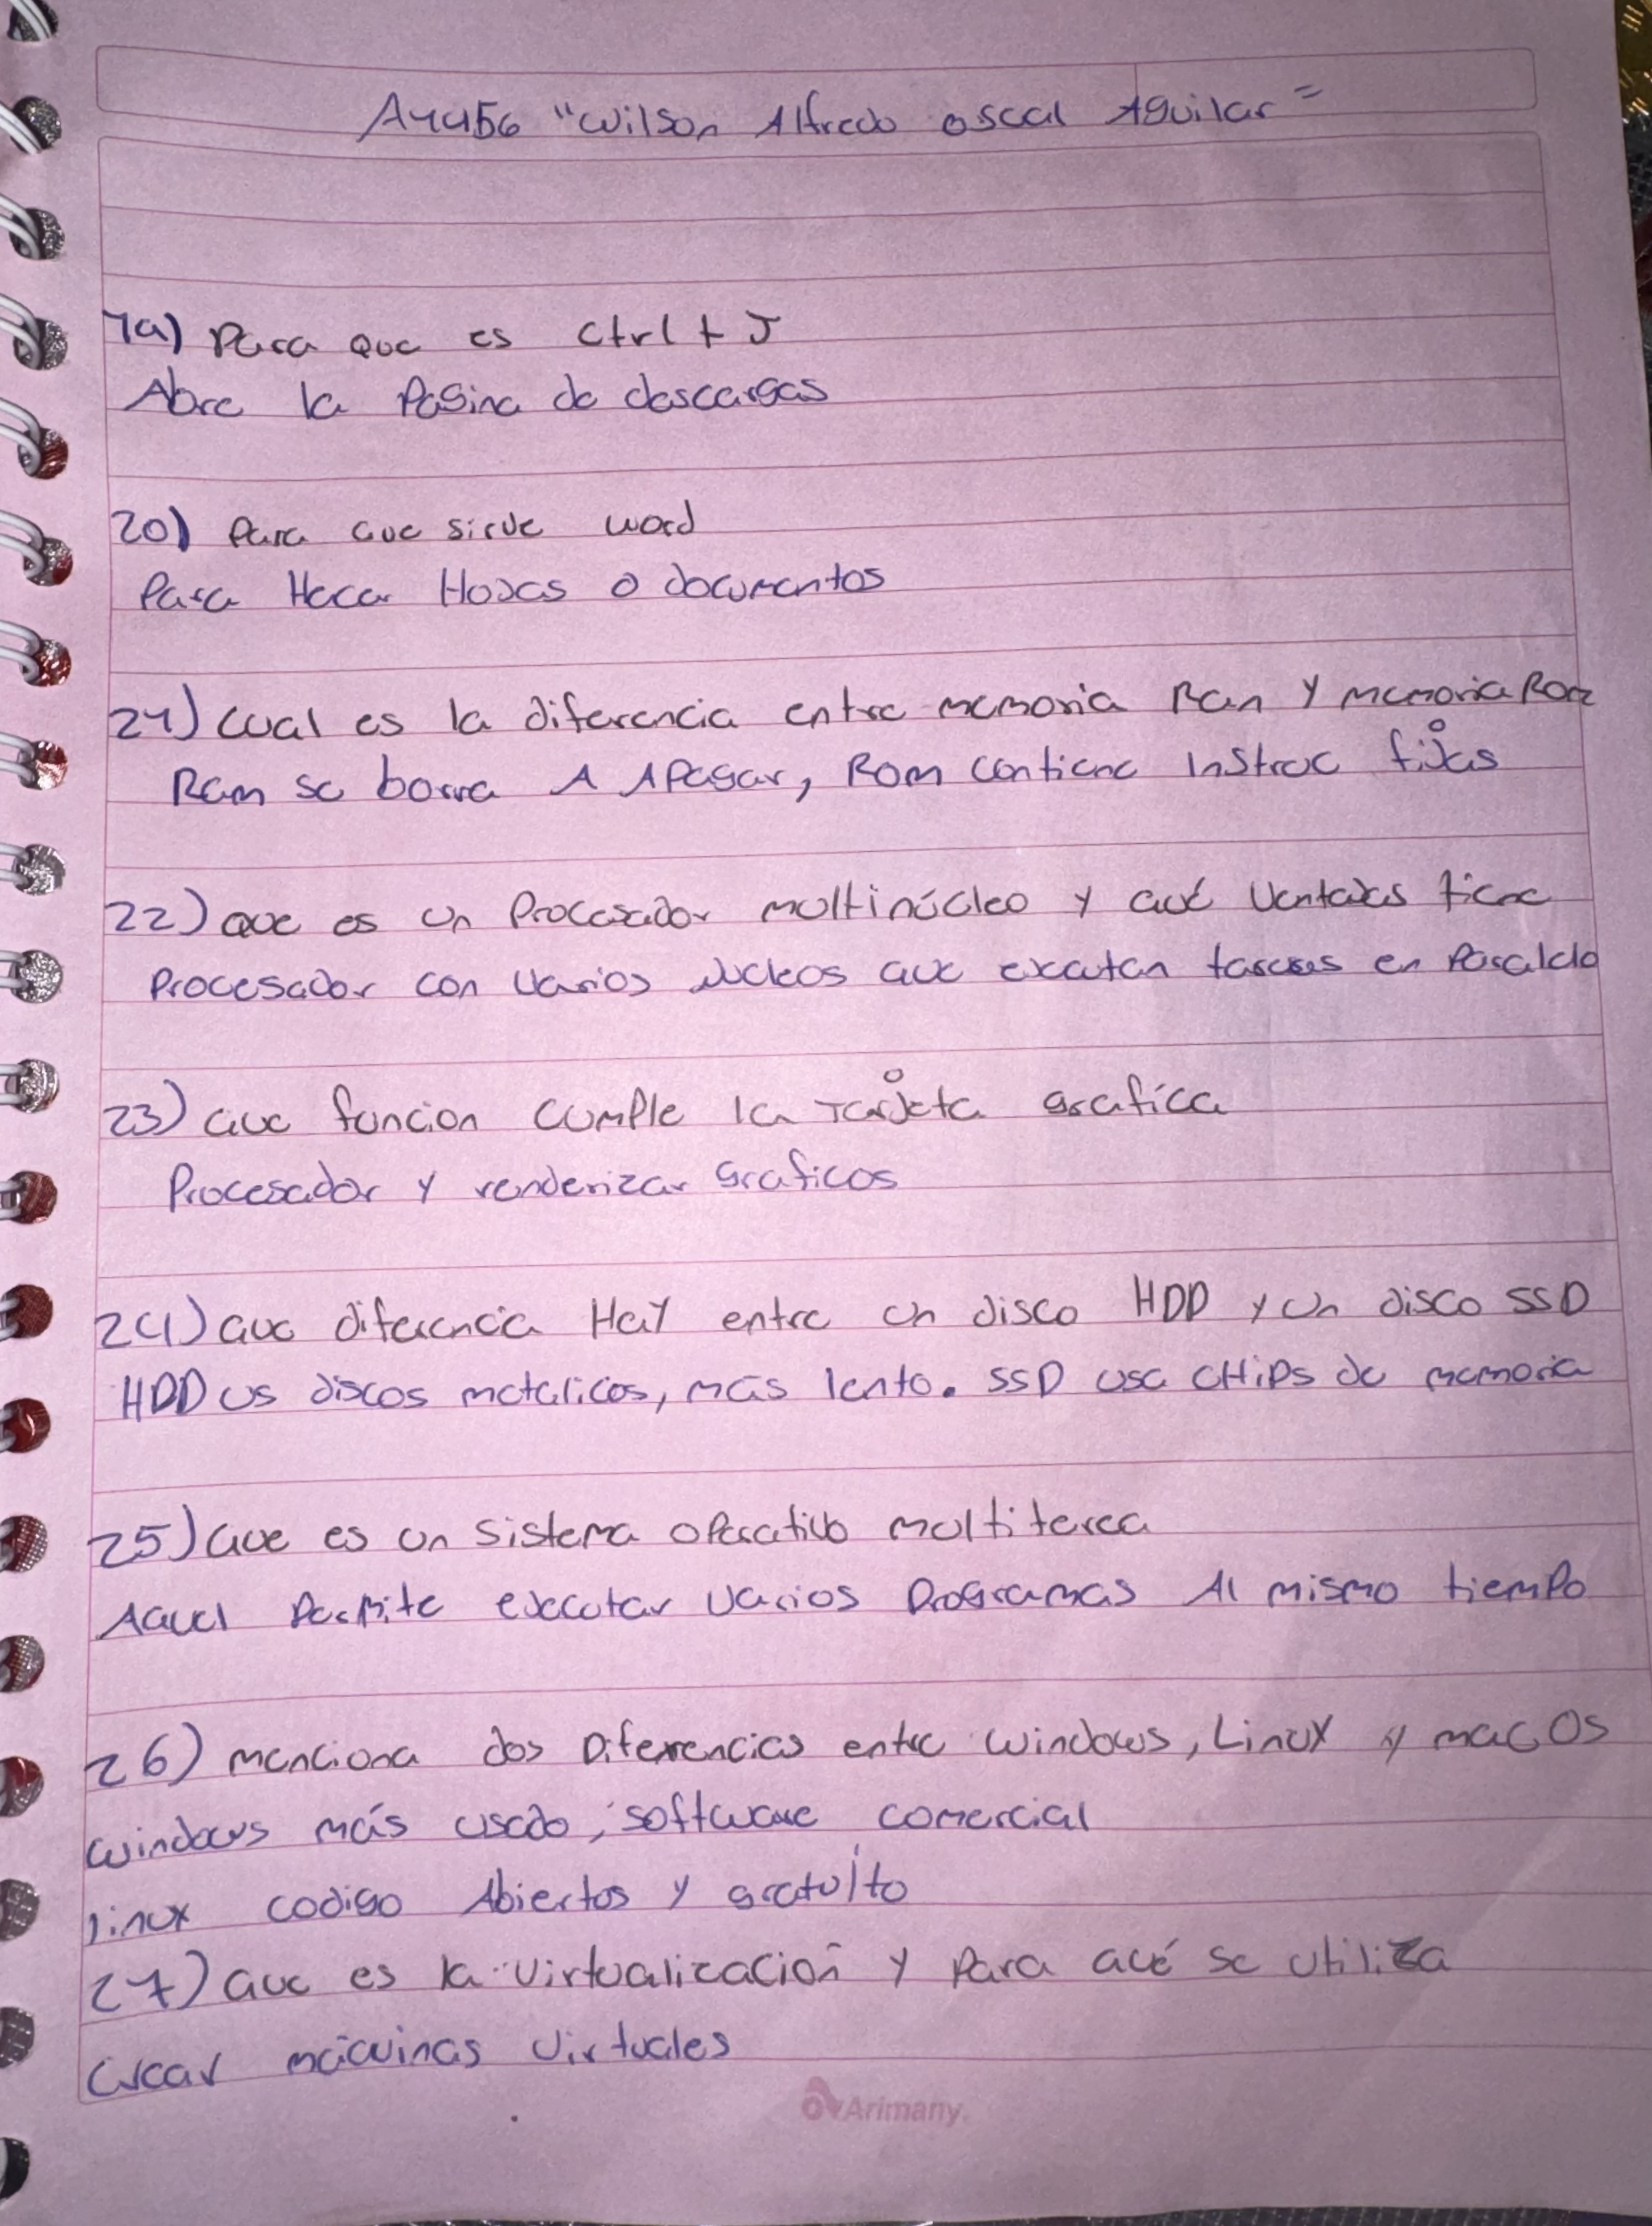 A4456 "Wilson Alfredo oscal Aguilar"
19) Para Que es Ctrl + J
Abre la Pagina de descargas
20) Para que sirve word
Para Hacer Hojas o documentos
21) cual es la diferencia entre memoria Ran y memoria Rom
Ram se borra A Apagar, Rom contiene Instruc fijas
22) que es un Procesador multinúcleo y qué ventajas tiene
Procesador con varios nucleos que excutan tareas en Paralelo
23) que funcion cumple la Tarjeta grafica
Procesador y renderizar Graficos
24) que diferencia Hay entre un disco HDD y un disco SSD
HDD us discos metalicos, más lento. SSD usa CHiPs de memoria
25) que es un sistema operativo multiterea
Aquel Permite ejecutar varios Programas Al mismo tiempo
26) menciona dos Diferencias entre windows, Linux y macOs
windows más usado, software comercial
linux codigo Abiertos y gratuito
27) que es la virtualización y Para qué se utiliza
Crear máquinas virtuales
Arimany